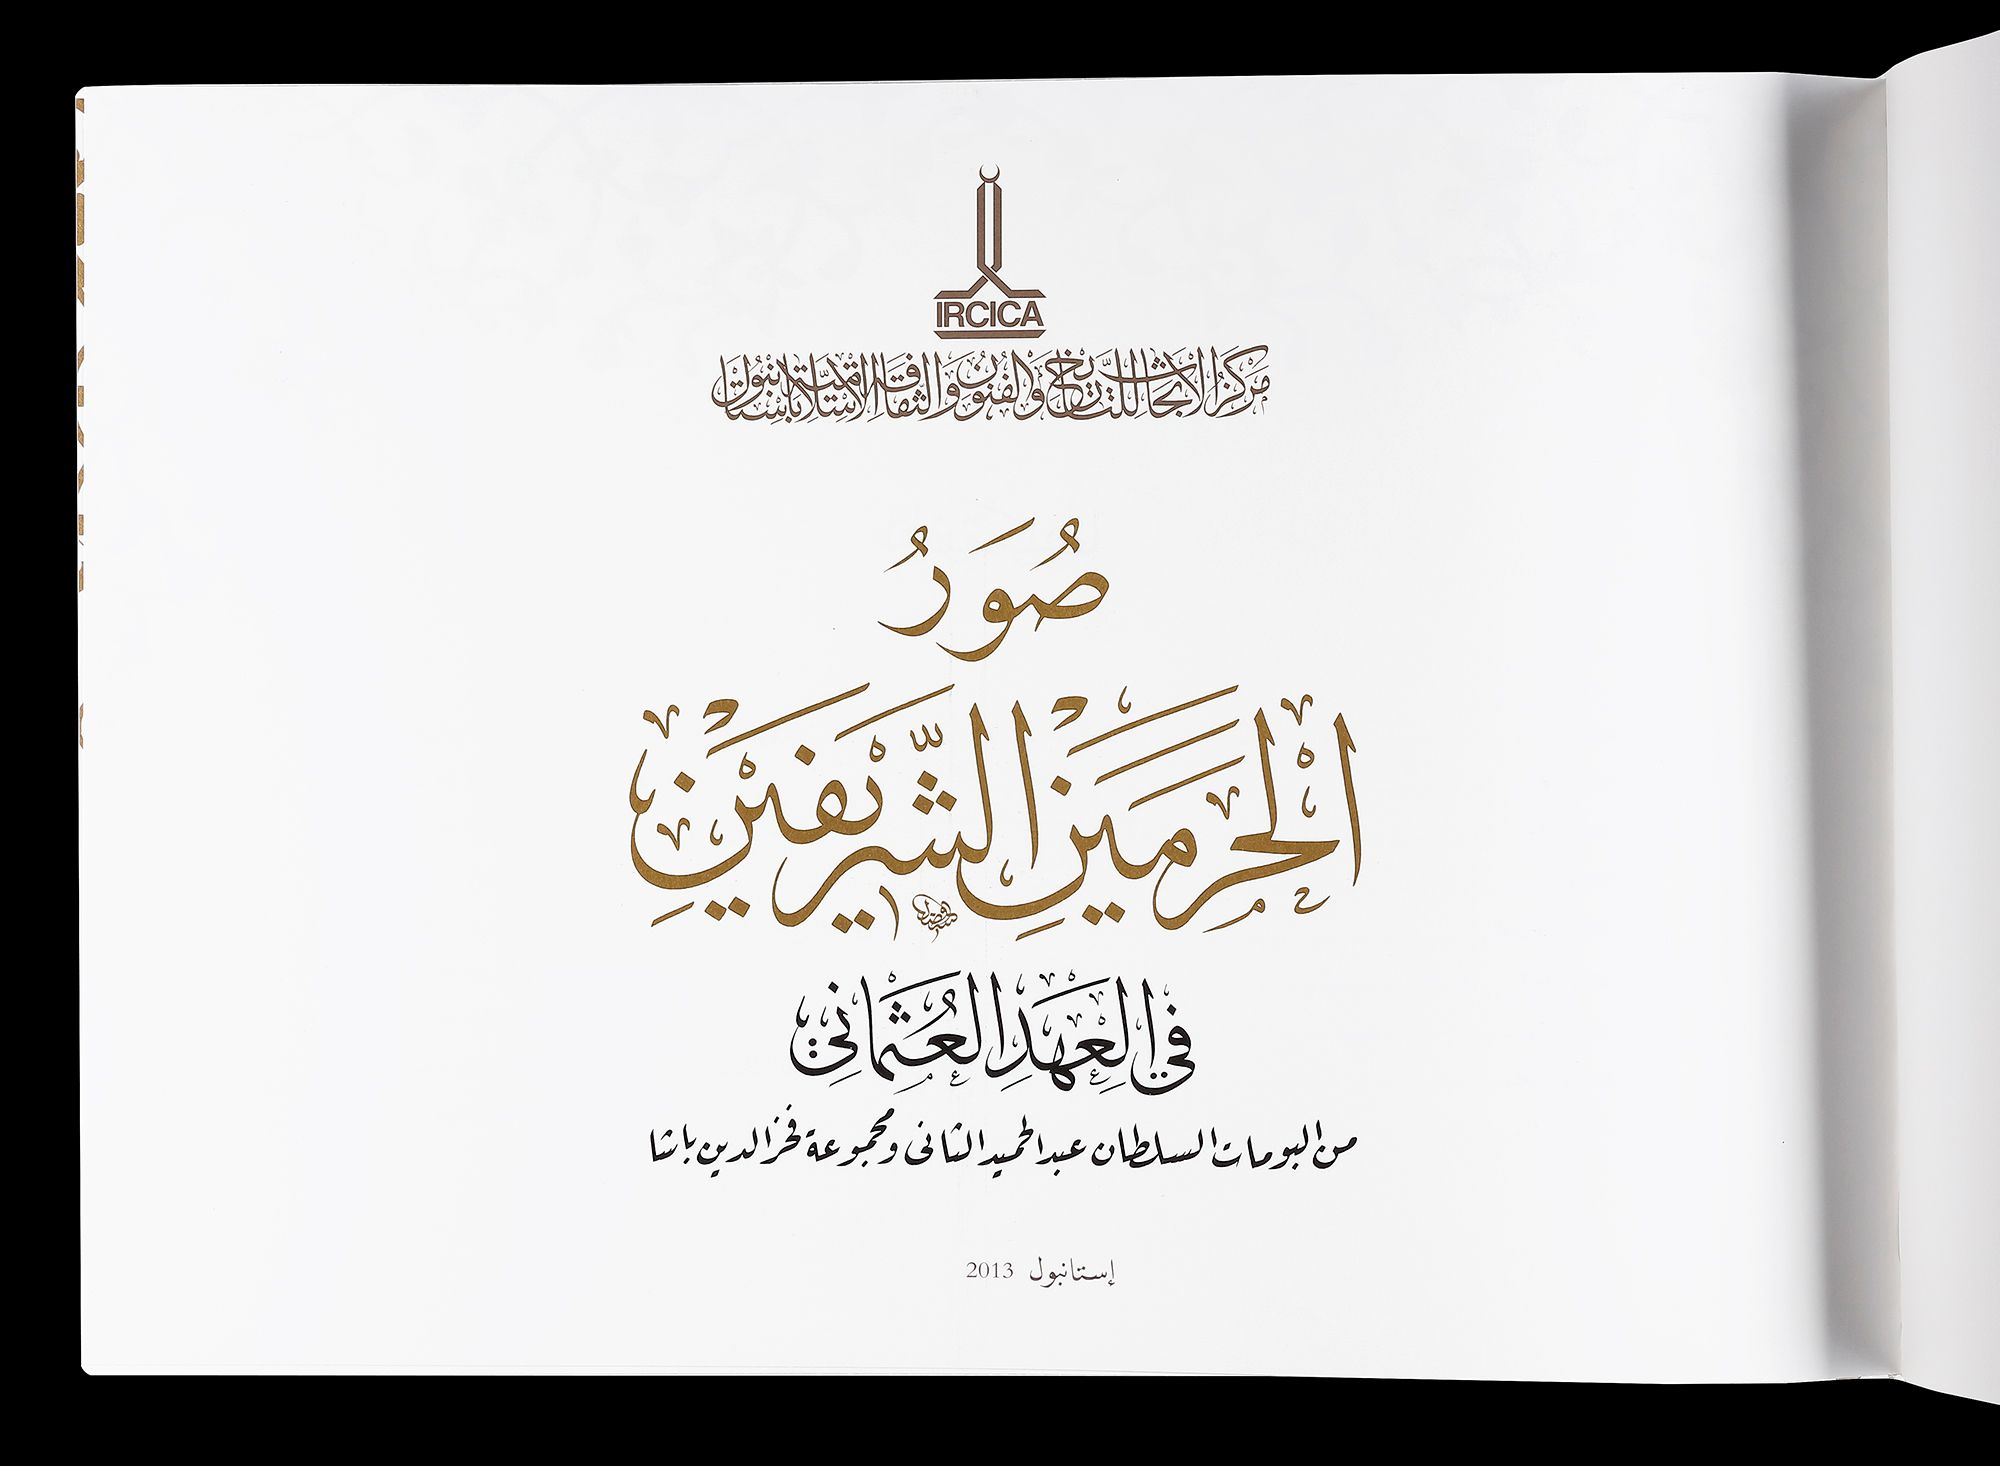 IRCICA
مركز الأبحاث للتاريخ والفنون والثقافة الإسلامية بإستانبول
صُوَرُ
الحَرَمَيْنِ الشَّرِيفَيْنِ
في العَهْدِ العُثْمَانِي
من البومات السلطان عبد الحميد الثانى ومجموعة فخر الدين باشا
إستانبول 2013